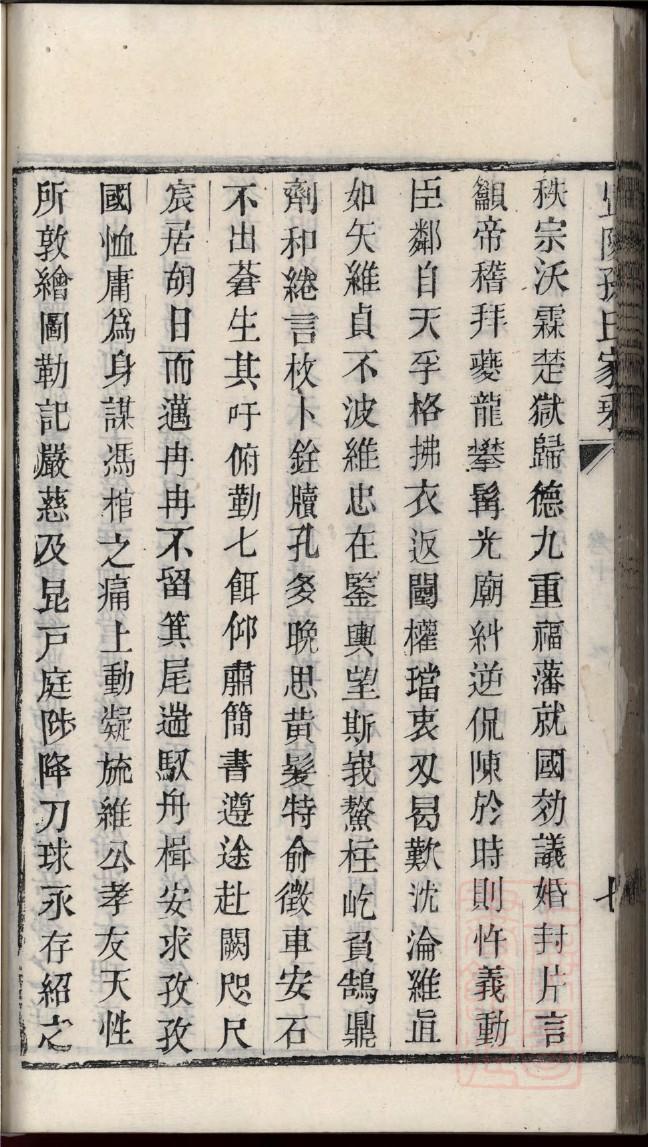 秩宗沃霖楚獄歸德九重福藩就國効議婚封片言
籲帝稽拜夔龍攀髯光廟糾逆侃陳於時則忤義動
臣鄰自天孚格拂衣返閩權璫衷刄曷歎沈淪維眞
如矢維貞不波維忠在鑒輿望斯峩鰲柱屹負鵠鼎
劑和綣言枚卜銓牘孔多晩思黄髮特俞徵車安石
不出蒼生其吁俯勤七餌仰肅簡書遵途赴闕咫尺
宸居胡日而邁冉冉不留箕尾遄馭舟楫安求孜孜
國恤庸爲身謀馮棺之痛上動凝旒維公孝友天性
所敦繪圖勒記嚴慈及昆戸庭陟降刀球永存紹之
陽孫氏家乘